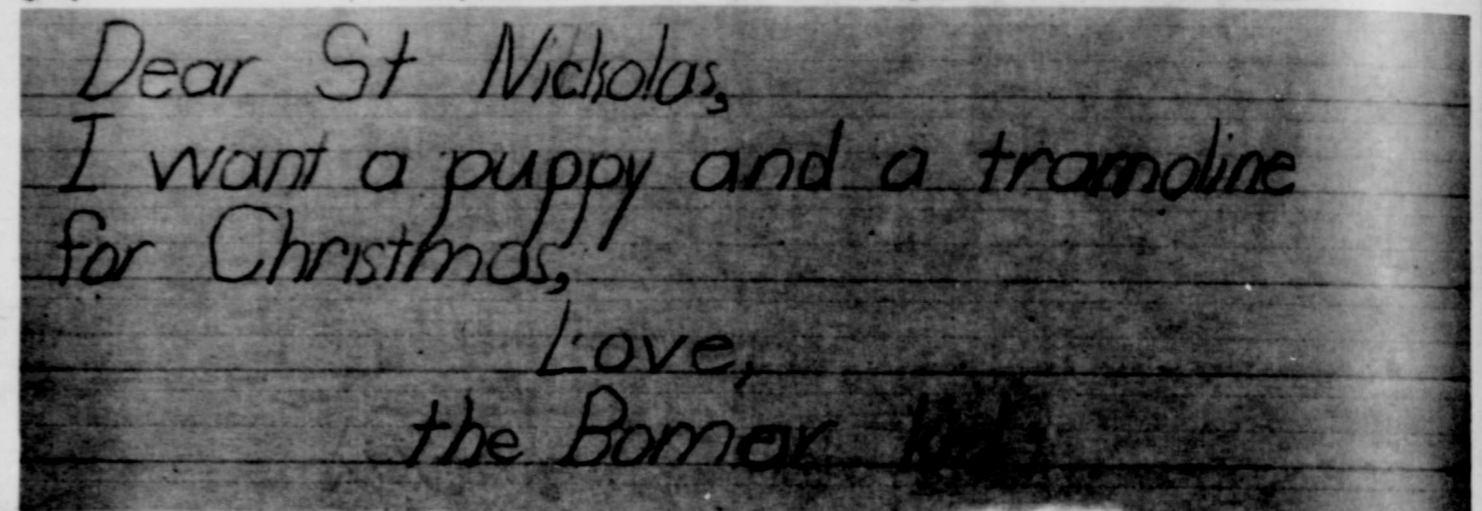 Dear St Nickolas,
I want a puppy and a tramoline
for Christmas,
Love,
the Bomar kid